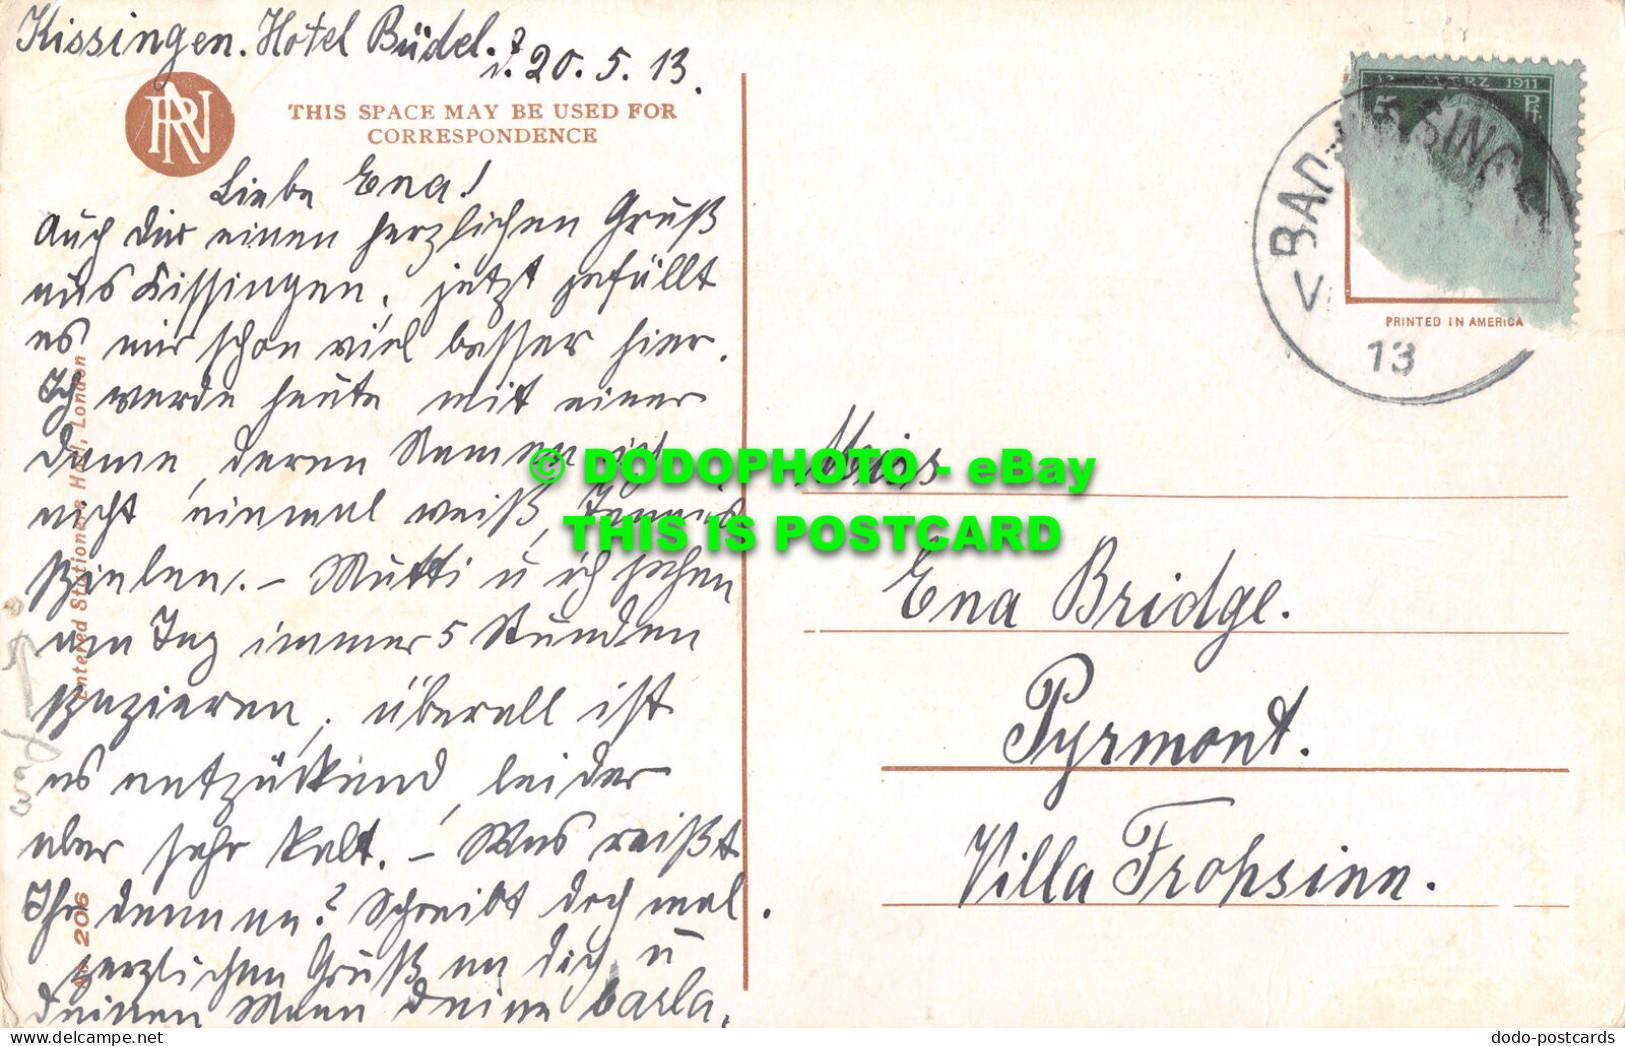 Kissingen. Hotel Büdel. d. 20. 5. 13.
RN
THIS SPACE MAY BE USED FOR
CORRESPONDENCE
Liebe Ena!
Auch dir einen herzlichen Gruß
aus Kissingen, jetzt gefällt
es mir schon viel besser hier.
Ich werde heute mit einer
Dame, deren Namen ich
nicht einmal weiß, Tennis
spielen. – Mutti u ich gehen
am Tag immer 5 Stunden
spazieren, überall ist
es entzückend, leider
aber sehr kalt. – Was
Ihr denn? Schreibt doch mal.
Herzlichen Gruß an dich u
deinen Mann deine Carla.
Entered Stationers Hall, London
No 206
12 MÄRZ 1911
5 Pf.
BAD KISSINGEN
13
PRINTED IN AMERICA
Miss
Ena Bridge.
Pyrmont.
Villa Frohsinn.
© DODOPHOTO - eBay
THIS IS POSTCARD
dodo-postcards